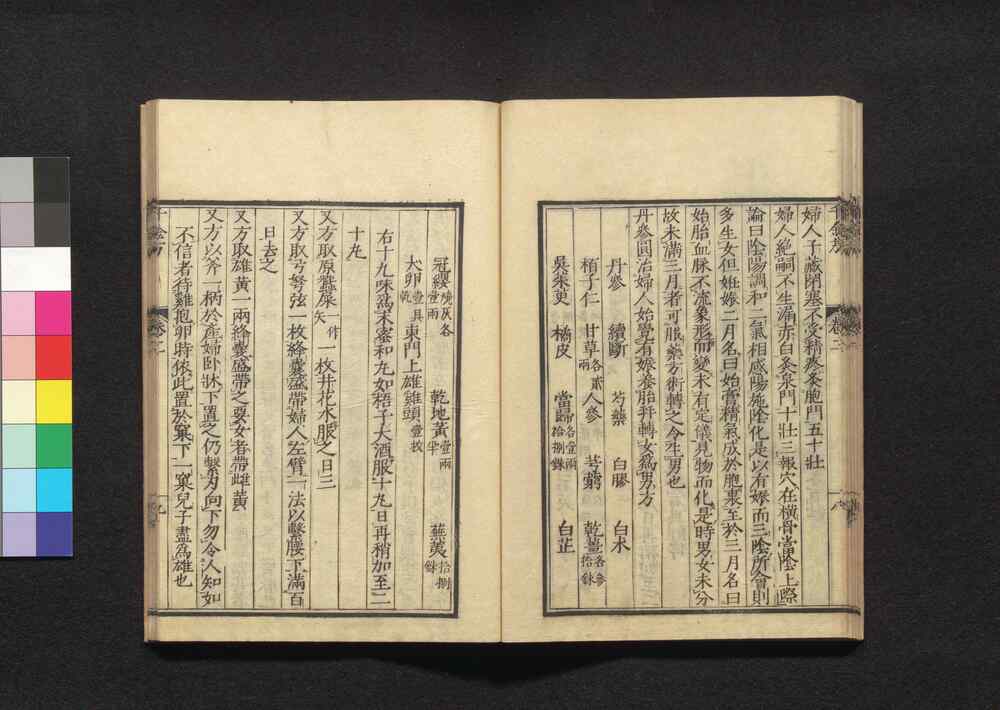 婦人子藏閉塞不受精疼灸胞門五十壯
婦人絶嗣不生漏赤白灸泉門十壯三報穴在橫骨當陰上際
論曰陰陽調和二氣相感陽施陰化是以有娠而三陰所會則
多生女但姙娠二月名曰始膏精氣成於胞裏至於三月名曰
始胎血脉不流象形而變未有定儀見物而化是時男女未分
故未滿三月者可服藥方術轉之令生男也
丹參圓治婦人始覺有娠養胎幷轉女爲男方
丹參 續斷 芍藥 白膠 白朮
柏子仁 甘草各貳兩 人參 芎藭 乾薑各參拾銖
吳茱萸 橘皮 當歸各壹兩拾捌銖 白芷
冠纓燒灰各壹兩 乾地黃壹兩半 蕪荑拾捌銖
犬卵壹具乾 東門上雄雞頭壹枚
右十九味爲末蜜和丸如梧子大酒服十丸日再稍加至二
十丸
又方取原蠶屎矢一枚井花水服之日三
又方取弓弩弦一枚絳囊盛帶婦人左臂一法以繫腰下滿百
日去之
又方取雄黃一兩絳囊盛帶之要女者帶雌黃
又方以斧一柄於產婦卧牀下置之仍繫刃向下勿令人知如
不信者待雞抱卵時依此置於窠下一窠兒子盡爲雄也